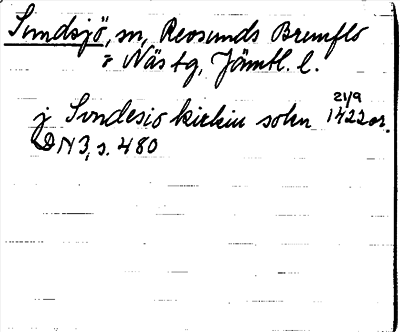 Sundsjö, sn, Revsunds Brunflo
o Näs tg, Jämtl. l.
j Swndesio kirkiu sokn 21/9 1422 or.
DN 3, s. 480